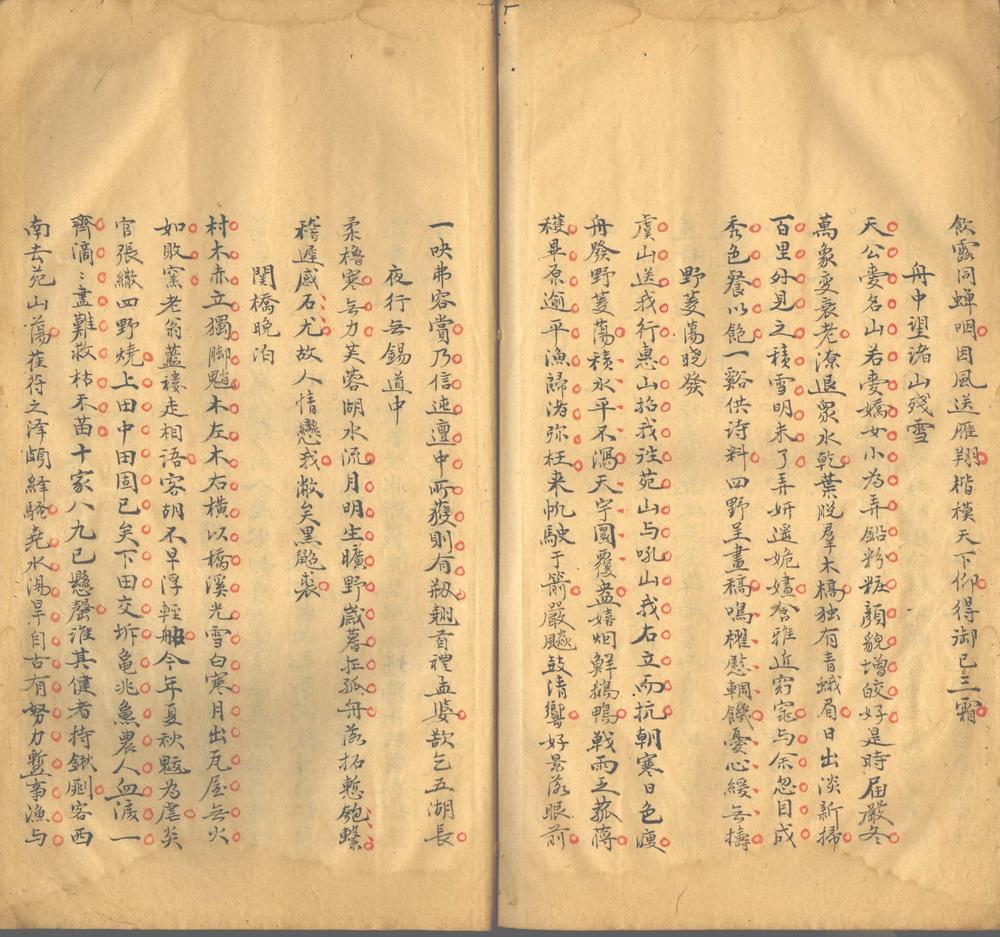 飲露同蟬咽因風送雁翔楷模天下仰得御已三霜
舟中望諸山殘雪
天公愛名山若愛嬌女小為弄鉛粉粧顏貌增皎好是時届嚴冬
萬象變衰老潦退衆水乾葉脫羣木槁独有青蛾眉日出淡新掃
百里外見之積雪明未了弄妍遣姽嫿含雅近窈窕与余忽目成
秀色餐以飽一谿供诗料四野呈畫稿鳴櫂慰輖饑憂心緩無擣
野菱蕩曉發
虞山送我行惠山招我诖苑山与吼山我右立而抗朝寒日色瘦
舟發野菱蕩積水平不瀉天宇圓覆盎嬉烟鮮鵝鴨戦雨乏菰蔣
穫畀原逾平漁歸渚弥枉来帆駛于箭嚴飈鼓清響好景落眼前
一映弗容賞乃信迍邅中所獲則有翹首禮孟婆欲乞五湖長
夜行無錫道中
柔櫓寒無力芙蓉湖水流月明生曠野歲暮在孤舟落拓慙匏繫
稽遲感石尤故人情戀我敝矣黑貂裘
閏橋晚泊
村木赤立獨脚魈木左木右横以橋溪光雪白寒月出瓦屋無火
如敗窯老翁藍褸走相语客胡不早浮輕舠今年夏秋魃為虐炎
官張繖四野燒上田中田固已矣下田交坼亀兆燋農人血淚一
齊滴滴盡難救枯禾苗十家八九已懸罄誰其健者持鍬劚客西
南去苑山蕩萑苻之泽頗繹騷堯水湯旱自古有努力蹔事漁与